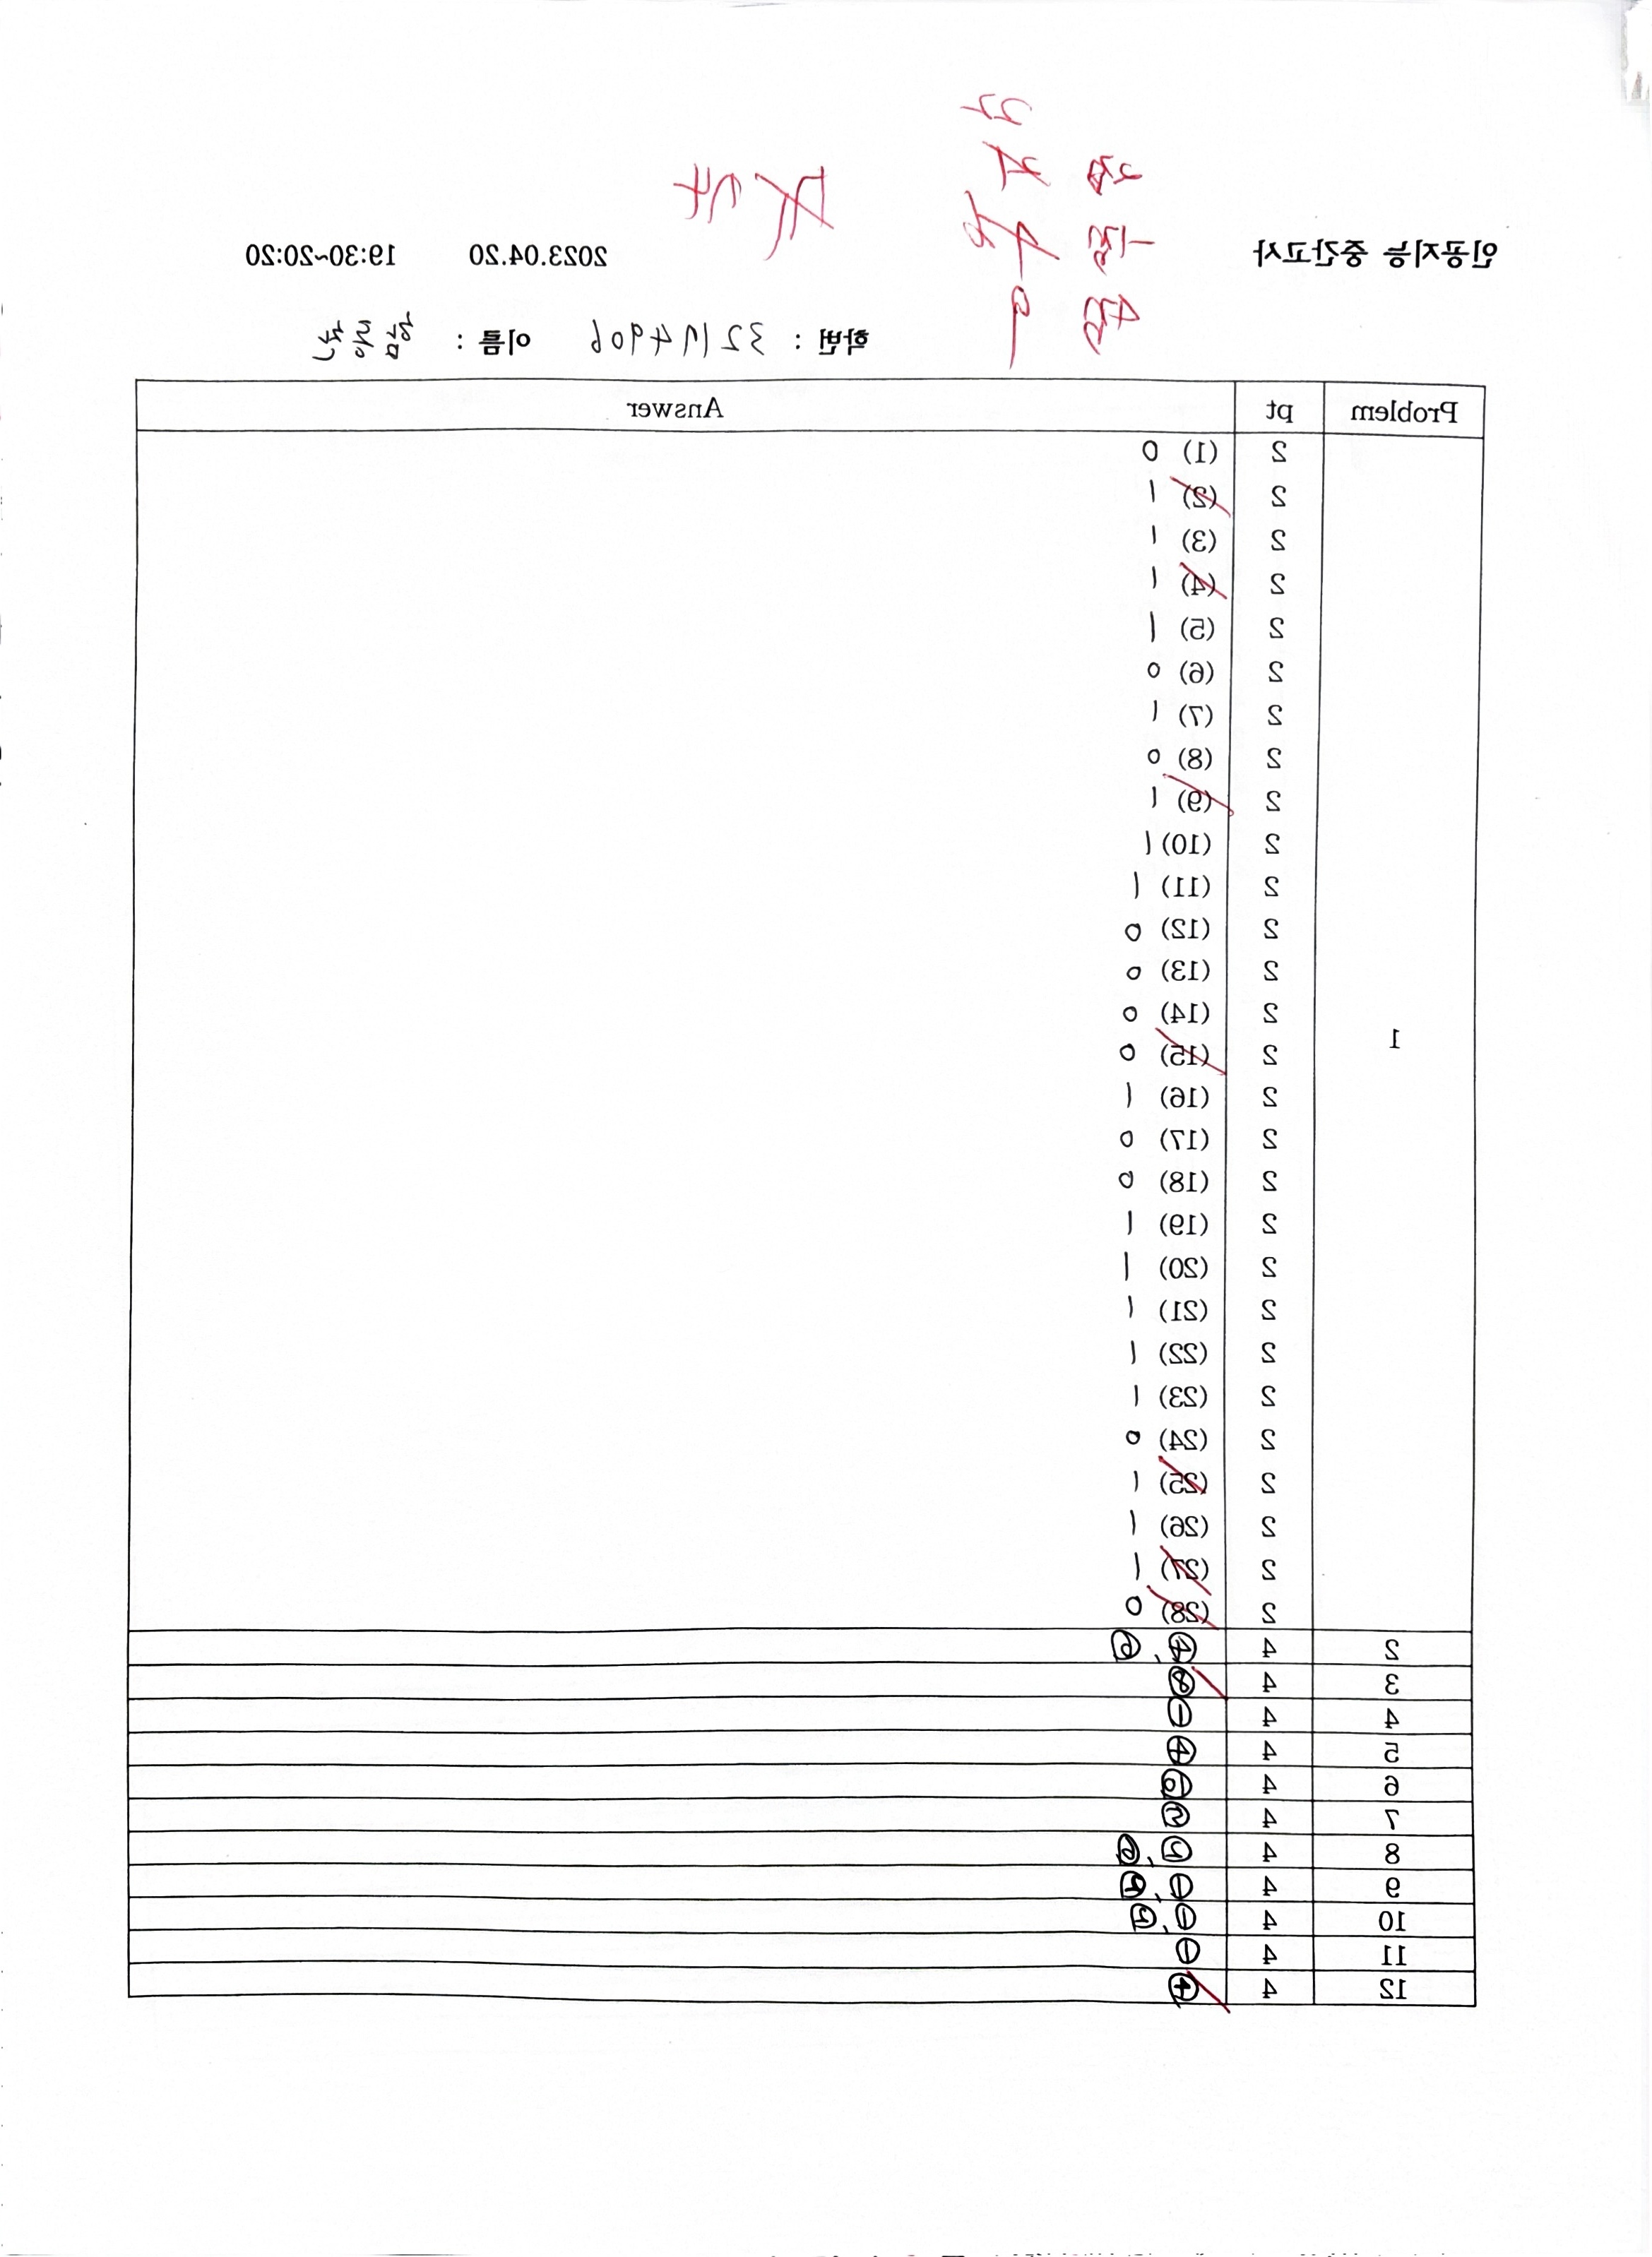 인공지능 중간고사 2023.04.20 19:30~20:20
학번 : 32174906 이름 :
Problem pt Answer
1
2 (1) 0
2 (2) 1
2 (3) 1
2 (4) 1
2 (5) 1
2 (6) 0
2 (7) 1
2 (8) 0
2 (9) 1
2 (10) 1
2 (11) 1
2 (12) 0
2 (13) 0
2 (14) 0
2 (15) 0
2 (16) 1
2 (17) 0
2 (18) 0
2 (19) 1
2 (20) 1
2 (21) 1
2 (22) 1
2 (23) 1
2 (24) 0
2 (25) 1
2 (26) 1
2 (27) 1
2 (28) 0
2 4 ④,
3 4
4 4 ①
5 4 ④
6 4
7 4
8 4
9 4 ①,
10 4 ①,
11 4 ①
12 4 ④